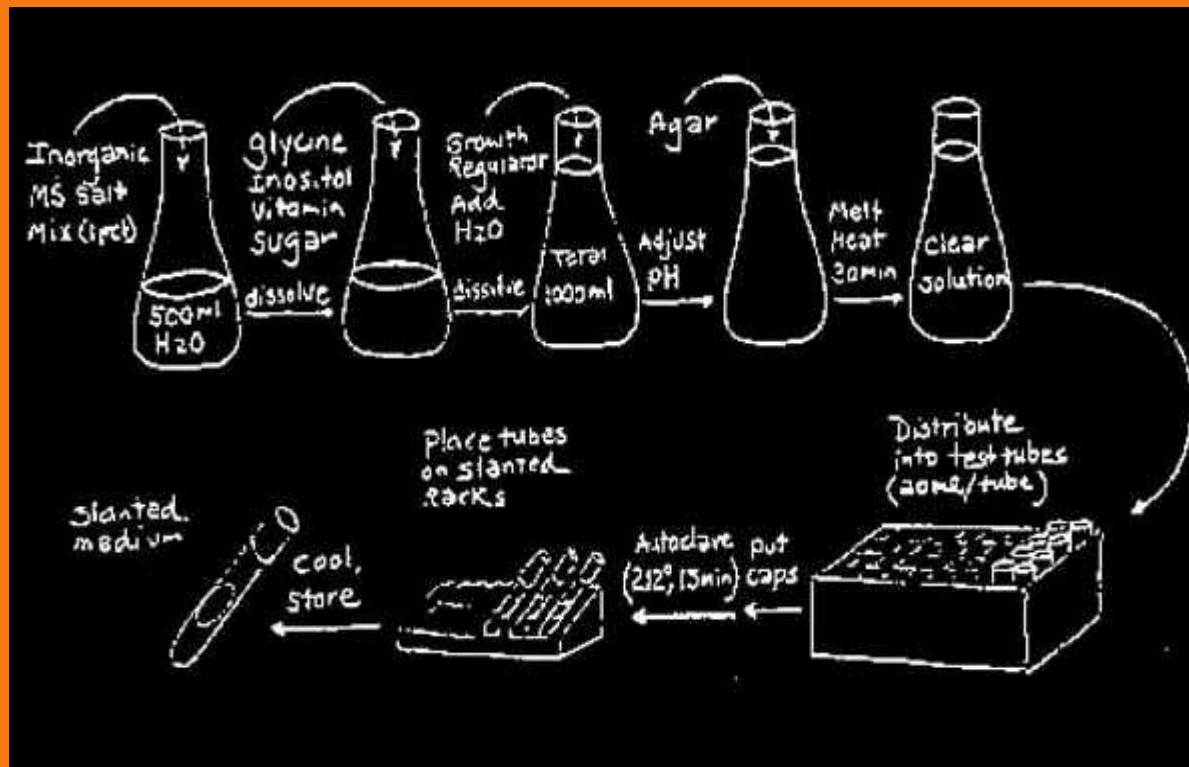 Inorganic
MS Salt
Mix (1pct)
500ml
H2O
dissolve
Glycine
Inositol
Vitamin
Sugar
dissolve
Growth
Regulator
Add
H2O
Total
1000ml
Adjust
pH
Agar
Melt
Heat
20min
Clear
Solution
Distribute
into test tubes
(20ml/tube)
put
caps
Autoclave
(212°, 15min)
Place tubes
on slanted
racks
Cool,
store
Slanted
medium